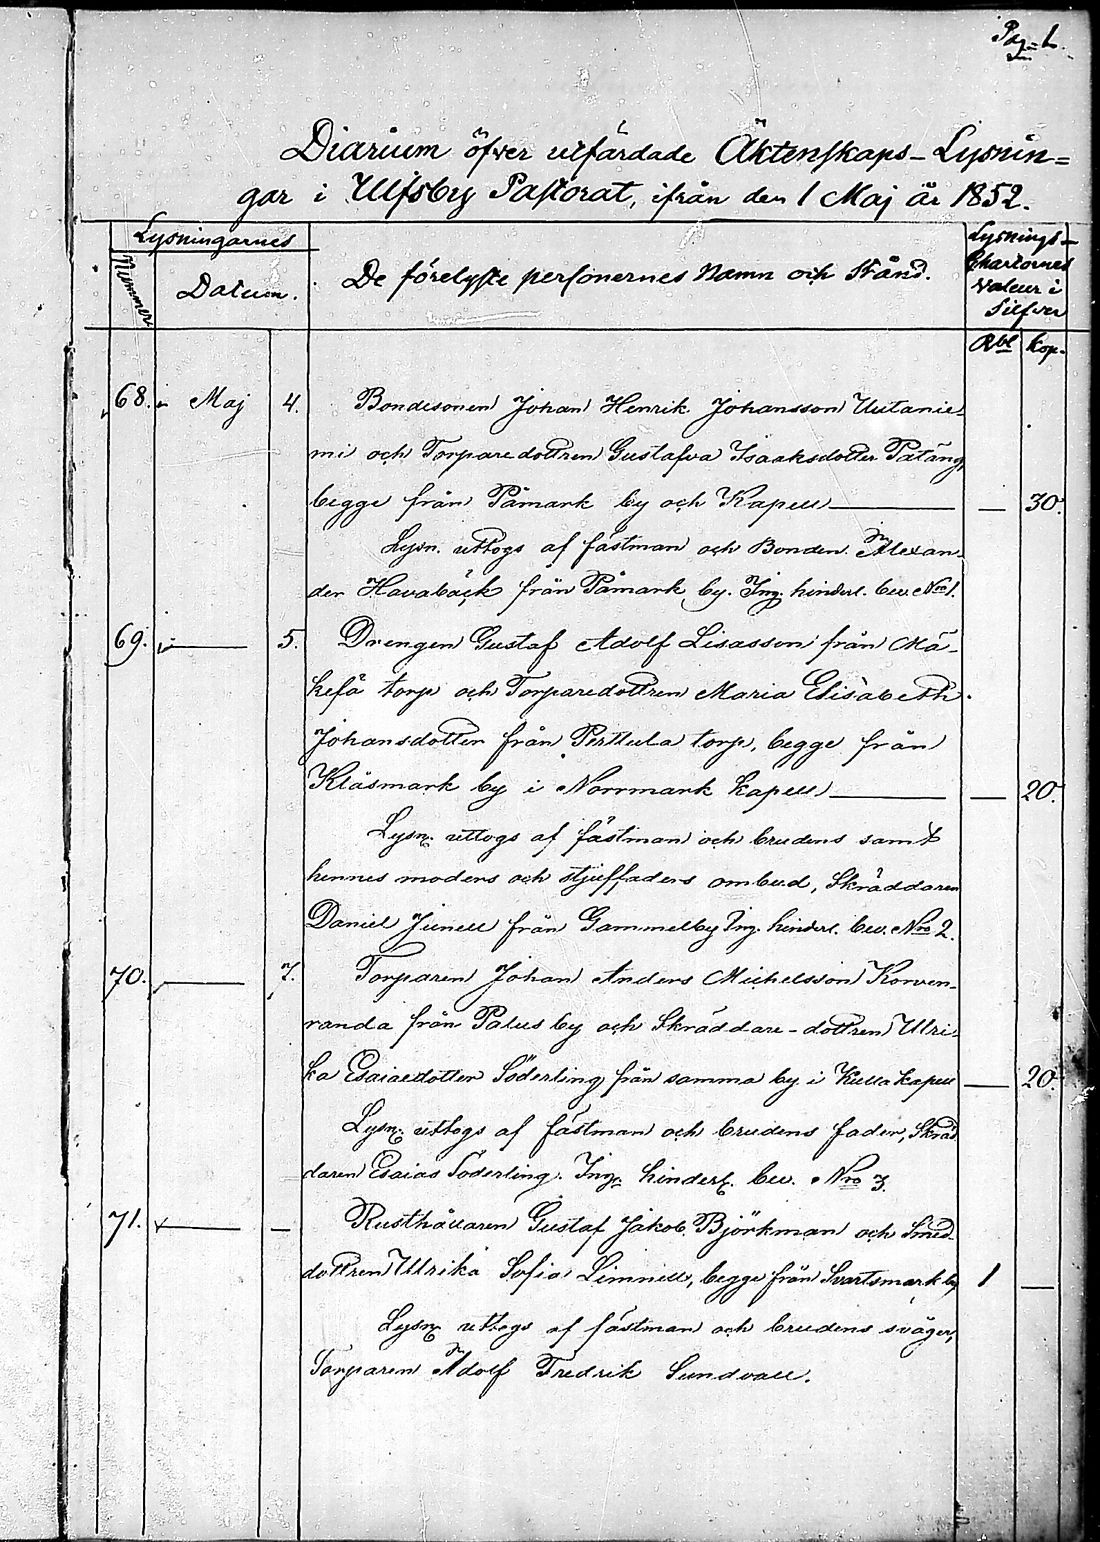 Pag. 1.
Diarium öfver utfärdade Äktenskaps-Lysnin=
gar i Ulfsby Pastorat, ifrån den 1 Maj år 1852.
Lysningarnes
Nummer
Datum.
De förelyste personernes Namn och Stånd.
Lysnings-
Chartornes
valeur i
Silfver
Rbl kop.
68. Maj 4. Bondesonen Johan Henrik Johansson Uutanie-
mi och Torparedottren Gustafva Isaaksdotter Patäng,
begge från Påmark by och Kapell — 30.
Lysn. uttogs af fästman och Bonden Alexan-
der Havabäck från Påmark by. Ing. hinderl. bev. Nro 1.
69. 5. Drengen Gustaf Adolf Lisasson från Mä-
kefä torp och Torparedottren Maria Elisabeth
Johansdotter från Perttula torp, begge från
Klåsmark by i Norrmark kapell — 20.
Lysn. uttogs af fästman och brudens samt
hennes moders och stjuffaders ombud, Skräddaren
Daniel Junell från Gammelby Ing. hinderl. bev. Nro 2.
70. 7. Torparen Johan Anders Michelsson Korven-
randa från Palus by och Skräddare-dottren Ulri-
ka Esaiaedotter Söderling från samma by i Kulla kapell — 20.
Lysn. uttogs af fästman och brudens fader, Skräd
daren Esaias Söderling. Ing. hinderl. bev. Nro 3.
71. — Rusthållaren Gustaf Jakob Björkman och Smed-
dottren Ulrika Sofia Limnell, begge från Svartsmark by 1 —
Lysn. uttogs af fästman och brudens svåger,
Torparen Adolf Fredrik Sundvall.